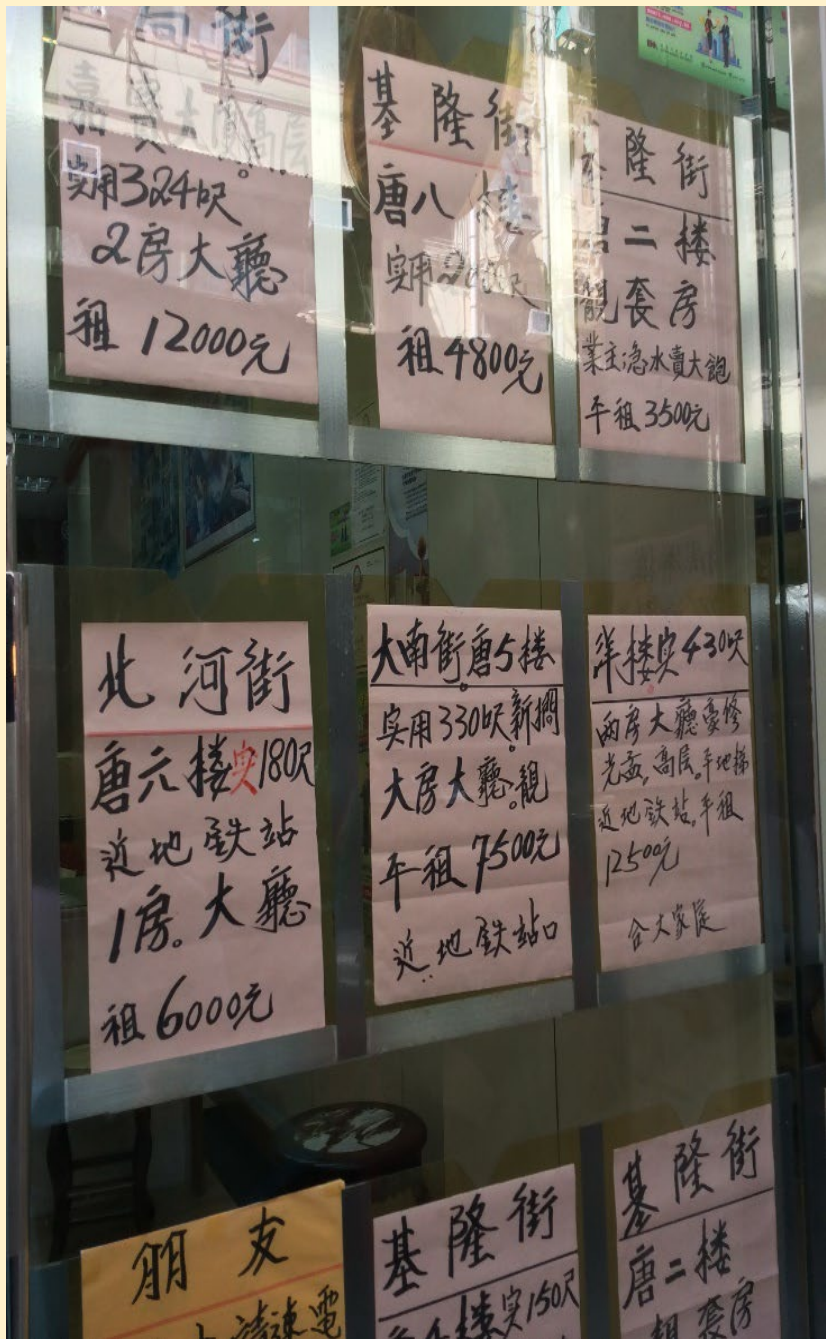 尚街
嘉寶大廈高层
実用324呎
2房大廳
租 12000元
基隆街
唐八楼
実用200尺
租4800元
基隆街
唐二楼
靚套房
業主急水賣大飽
平租3500元
北河街
唐六楼実180尺
近地鉄站
1房。大廳
租6000元
大南街唐5楼
実用330呎新擱
大房大廳。靚
平租7500元
近地鉄站口
洋楼実430呎
兩房大廳豪修
光猛,高层,平地梯
近地鉄站,平租
12500元
合大家庭
朋友
請速電
基隆街
楼実150尺
基隆街
唐二楼
靚套房